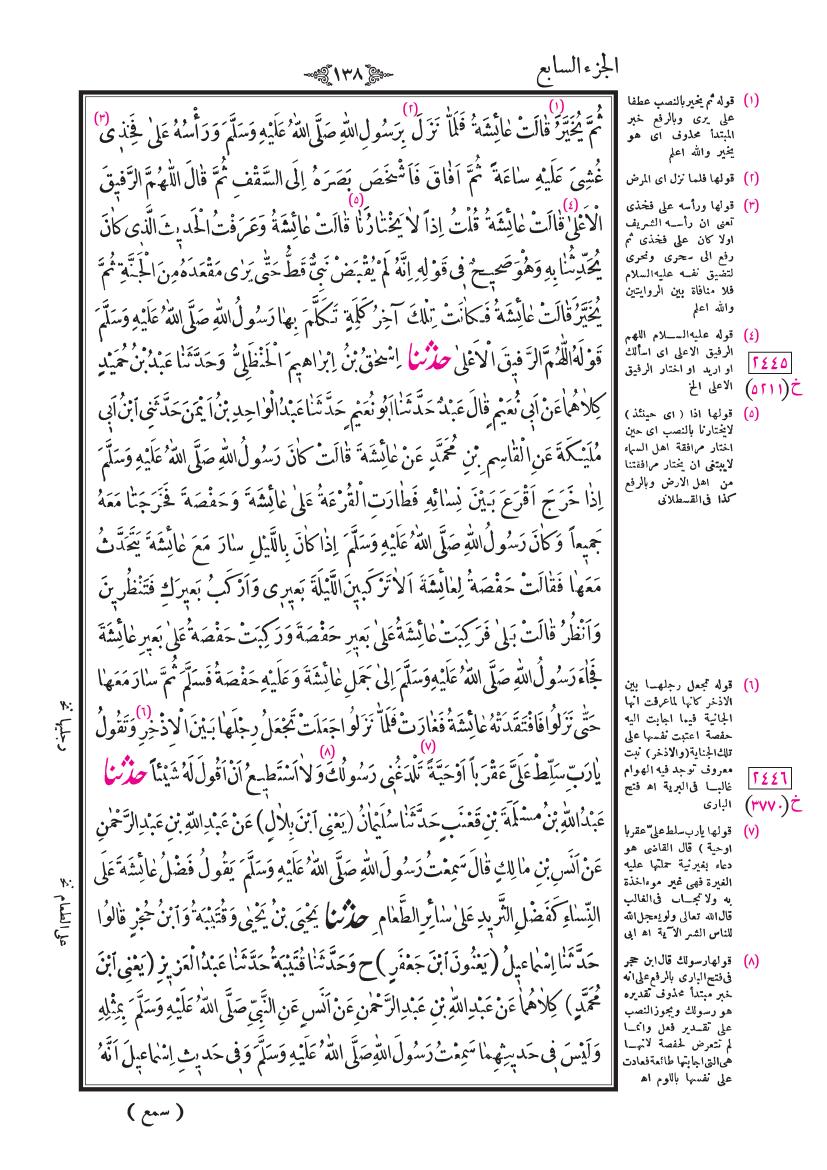 الجزء السابع
١٣٨
ثُمَّ يُخَيَّرُ (١) قَالَتْ عَائِشَةُ فَلَمَّا نَزَلَ (٢) بِرَسُولِ اللهِ صَلَّى اللهُ عَلَيْهِ وَسَلَّمَ وَرَأْسُهُ عَلَى فَخِذِى (٣)
غُشِىَ عَلَيْهِ سَاعَةً ثُمَّ اَفَاقَ فَاَشْخَصَ بَصَرَهُ اِلَى السَّقْفِ ثُمَّ قَالَ اللّٰهُمَّ الرَّفِيقَ
الْاَعْلَى (٤) قَالَتْ عَائِشَةُ قُلْتُ اِذاً لَا يَخْتَارُنَا (٥) قَالَتْ عَائِشَةُ وَعَرَفْتُ الْحَدِيثَ الَّذِى كَانَ
يُحَدِّثُنَا بِهِ وَهُوَ صَحِيحٌ فِى قَوْلِهِ اِنَّهُ لَمْ يُقْبَضْ نَبِىٌّ قَطُّ حَتَّى يَرَى مَقْعَدَهُ مِنَ الْجَنَّةِ ثُمَّ
يُخَيَّرُ قَالَتْ عَائِشَةُ فَكَانَتْ تِلْكَ آخِرُ كَلِمَةٍ تَكَلَّمَ بِهَا رَسُولُ اللهِ صَلَّى اللهُ عَلَيْهِ وَسَلَّمَ
قَوْلَهُ اللّٰهُمَّ الرَّفِيقَ الْاَعْلَى حدثنا اِسْحٰقُ بْنُ اِبْرَاهِيمَ الْحَنْظَلِىُّ وَحَدَّثَنَا عَبْدُ بْنُ حُمَيْدٍ
كِلَاهُمَا عَنْ اَبِى نُعَيْمٍ قَالَ عَبْدٌ حَدَّثَنَا اَبُو نُعَيْمٍ حَدَّثَنَا عَبْدُ الْوَاحِدِ بْنُ اَيْمَنَ حَدَّثَنِى ابْنُ اَبِى
مُلَيْكَةَ عَنِ الْقَاسِمِ بْنِ مُحَمَّدٍ عَنْ عَائِشَةَ قَالَتْ كَانَ رَسُولُ اللهِ صَلَّى اللهُ عَلَيْهِ وَسَلَّمَ
اِذَا خَرَجَ اَقْرَعَ بَيْنَ نِسَائِهِ فَطَارَتِ الْقُرْعَةُ عَلَى عَائِشَةَ وَحَفْصَةَ فَخَرَجَتَا مَعَهُ
جَمِيعاً وَكَانَ رَسُولُ اللهِ صَلَّى اللهُ عَلَيْهِ وَسَلَّمَ اِذَا كَانَ بِاللَّيْلِ سَارَ مَعَ عَائِشَةَ يَتَحَدَّثُ
مَعَهَا فَقَالَتْ حَفْصَةُ لِعَائِشَةَ اَلَا تَرْكَبِينَ اللَّيْلَةَ بَعِيرِى وَاَرْكَبُ بَعِيرَكِ فَتَنْظُرِينَ
وَاَنْظُرُ قَالَتْ بَلَى فَرَكِبَتْ عَائِشَةُ عَلَى بَعِيرِ حَفْصَةَ وَرَكِبَتْ حَفْصَةُ عَلَى بَعِيرِ عَائِشَةَ
فَجَاءَ رَسُولُ اللهِ صَلَّى اللهُ عَلَيْهِ وَسَلَّمَ اِلَى جَمَلِ عَائِشَةَ وَعَلَيْهِ حَفْصَةُ فَسَلَّمَ ثُمَّ سَارَ مَعَهَا
حَتَّى نَزَلُوا فَافْتَقَدَتْهُ عَائِشَةُ فَغَارَتْ فَلَمَّا نَزَلُوا جَعَلَتْ تَجْعَلُ رِجْلَهَا بَيْنَ الْاِذْخِرِ (٦) وَتَقُولُ
يَارَبِّ سَلِّطْ عَلَىَّ عَقْرَباً اَوْ حَيَّةً (٧) تَلْدَغُنِى رَسُولُكَ (٨) وَلَا اَسْتَطِيعُ اَنْ اَقُولَ لَهُ شَيْئاً حدثنا
عَبْدُ اللهِ بْنُ مَسْلَمَةَ بْنِ قَعْنَبٍ حَدَّثَنَا سُلَيْمَانُ (يَعْنِى ابْنَ بِلَالٍ) عَنْ عَبْدِ اللهِ بْنِ عَبْدِ الرَّحْمٰنِ
عَنْ اَنَسِ بْنِ مَالِكٍ قَالَ سَمِعْتُ رَسُولَ اللهِ صَلَّى اللهُ عَلَيْهِ وَسَلَّمَ يَقُولُ فَضْلُ عَائِشَةَ عَلَى
النِّسَاءِ كَفَضْلِ الثَّرِيدِ عَلَى سَائِرِ الطَّعَامِ حدثنا يَحْيَى بْنُ يَحْيَى وَقُتَيْبَةُ وَابْنُ حُجْرٍ قَالُوا
حَدَّثَنَا اِسْمَاعِيلُ (يَعْنُونَ ابْنَ جَعْفَرٍ) ح وَحَدَّثَنَا قُتَيْبَةُ حَدَّثَنَا عَبْدُ الْعَزِيزِ (يَعْنِى ابْنَ
مُحَمَّدٍ) كِلَاهُمَا عَنْ عَبْدِ اللهِ بْنِ عَبْدِ الرَّحْمٰنِ عَنْ اَنَسٍ عَنِ النَّبِىِّ صَلَّى اللهُ عَلَيْهِ وَسَلَّمَ بِمِثْلِهِ
وَلَيْسَ فِى حَدِيثِهِمَا سَمِعْتُ رَسُولَ اللهِ صَلَّى اللهُ عَلَيْهِ وَسَلَّمَ وَفِى حَدِيثِ اِسْمَاعِيلَ اَنَّهُ
( سمع )
(١) قوله ثم يخير بالنصب عطفا
على يرى وبالرفع خبر
المبتدأ محذوف اى هو
يخير والله اعلم
(٢) قولها فلما نزل اى المرض
(٣) قولها ورأسه على فخذى
تعنى ان رأسه الشريف
اولا كان على فخذى ثم
رفع الى سحرى ونحرى
لتضيق نفسه عليه السلام
فلا منافاة بين الروايتين
والله اعلم
(٤) قوله عليه السلام اللهم
الرفيق الاعلى اى اسألك
او اريد او اختار الرفيق
الاعلى الخ
٢٤٤٥
خ (٥٢١١)
(٥) قولها اذا ( اى حينئذ )
لايختارنا بالنصب اى حين
اختار مرافقة اهل السماء
لاينبغى ان يختار مرافقتنا
من اهل الارض وبالرفع
كذا فى القسطلانى
(٦) قوله تجعل رجلها بين
الاذخر كانها لما عرفت انها
الجانية فيما اجابت اليه
حفصة اعتبت نفسها على
تلك الجناية (والاذخر) نبت
معروف توجد فيه الهوام
غالبا فى البرية اه فتح
البارى
٢٤٤٦
خ (٣٧٧٠)
(٧) قولها يارب سلط علىّ عقربا
اوحية ) قال القاضى هو
دعاء بغيرنية حملتها عليه
الغيرة فهى غير مؤاخذة
به ولا تجاب فى الغالب
قال الله تعالى ولو يعجل الله
للناس الشر الآية اه ابى
(٨) قولها رسولك قال ابن حجر
فى فتح البارى بالرفع على انه
خبر مبتدأ محذوف تقديره
هو رسولك ويجوز النصب
على تقدير فعل وانما
لم تتعرض لحفصة لانها
هى التى اجابتها طائعة فعادت
على نفسها باللوم اه
رجليها نخ
على الطعام نخ